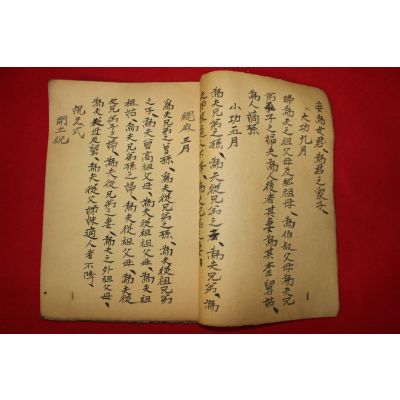 妾爲女君、爲君之衆子、
大功九月
婦爲夫之祖父母及繼祖母、爲伯叔父母爲夫兄
弟子之婦夫爲人後者其妻爲其本生舅姑、
爲人嫡孫
小功五月
爲夫兄弟之孫、爲夫從兄弟之子、爲夫兄弟、爲
緦麻三月
爲夫兄弟之曾孫、爲夫從兄弟之孫、爲夫從祖兄弟
之子、爲夫曾高祖父母、爲夫從祖祖父母、爲夫祖
祖姑、爲夫兄弟孫之婦、爲夫從祖父母、爲夫從
父兄弟子之婦、爲夫從兄弟之妻、爲夫之外祖父母、
爲夫從母及舅、爲夫從父姊妹適人者不降、
祝文式
開土祝